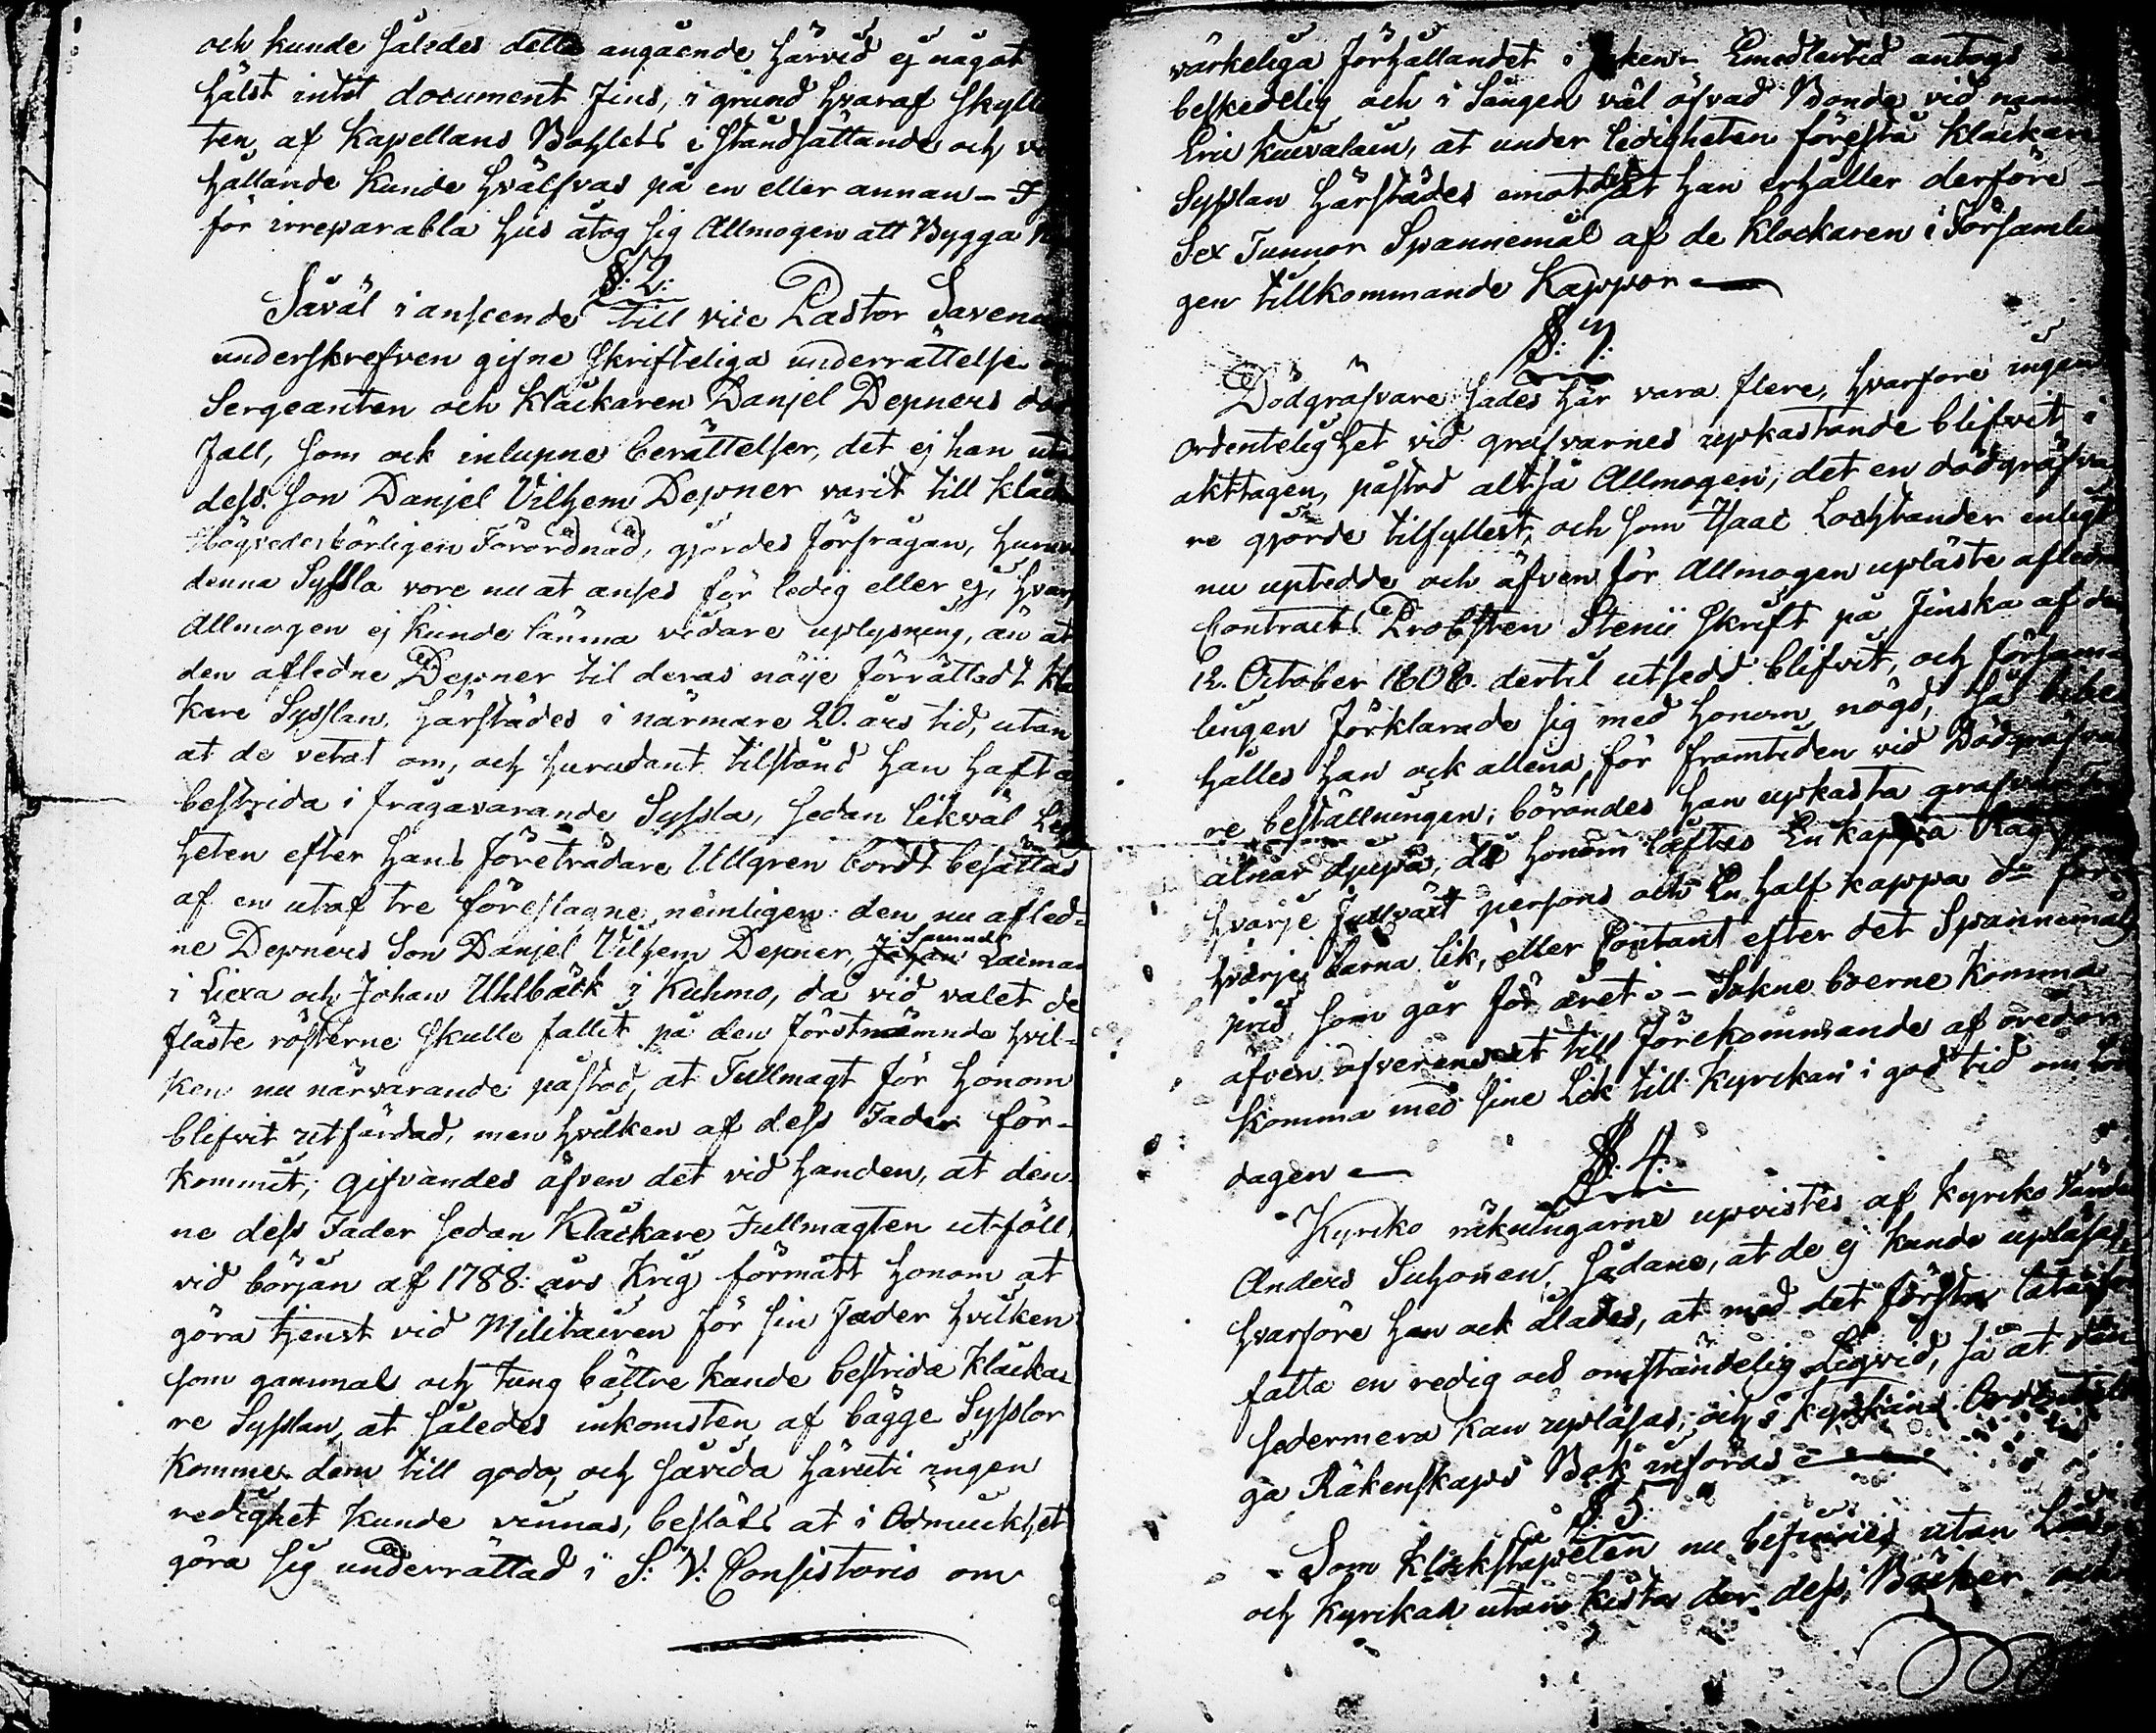 och kunde således detta angående härvid ej något
hälst intet document fins, i grund hvaraf skyl
ten, af Kapellans Bohlets i ståndsättande och
hållande kunde hvälfvas på en eller annan –
för irreparabla hus åtog sig Allmogen att Bygga
§. 2.
Såväl i anseende till vice Pastor Saveni
underskrefven gifne skrifteliga underrättelse
Sergeanten och Klåckaren Danjel Depners död
fall, som ock inlupne berättelser, det ej han ut
dess son Danjel Vilhem Depner varit till klåck
högvederbörligen Förordnad, gjordes förfrågan, huru
denna Syssla vore nu at anses för ledig eller ej, hvar
Allmogen ej kunde lämna vidare uplysning, än at
den afledne Depner til deras nöije förrättadt klå
kare Sysslan härstädes i närmare 20. års tid, utan
at de vetat om, och hurudant tilstånd han haft
bestrida i frågavarande Syssla, sedan likväl Led
heten efter hans företrädare Ullgren bordt besättas
af en utaf tre föreslagne nemligen: den nu afled-
ne Depners Son Danjel Vilhem Depner, Samuel Laiman
i Liexa och Johan Uhlbäck i Kuhmo, då vid valet de
fläste rösterne skulle fallit på den förstnämnda hvil-
ken nu närvarande påstod, at Fullmagt för honom
blifvit utfärdad, men hvilken af dess Fader för-
kommit; gifvandes äfven det vid handen, at den-
ne dess Fader sedan Klåckare Fullmagten utföll
vid början af 1788: års Krig förmått honom at
göra tjenst vid Militairen för sin Fader hvilken
som gammal och tung bättre kunde bestrida Klåcka-
re Sysslan, at således inkomsten af bägge Sysslor
komme dem till godo, och såvida häruti ingen
redighet kunde vinnas, beslöts at i Ödmiukhet
göra sig underrättad i S: V: Consistorio om
värkeliga förhållandet i saken – Emedlertid antogs
beskedelig och i Sången väl öfvad Bonde vid namn
Eric Kuivalain, at under ledigheten förestå klåckare
Sysslan härstädes emot det at han erhåller derföre –
Sex Tunnor Spannemål af de Klockaren i Församlin
gen tillkommande Kappor –
§. 3.
Dödgräfvare sades här vara flere, hvarföre ingen
ordentelighet vid grafvarnes upkastande blifvit i
akttagen, påstod altså Allmogen, det en dödgräfva
re gjorde tilfyllest, och som Isaac Lochstander enligt
nu uptedde och äfven för Allmogen upläste afledne
Contracts Probsten Stenii skrift på Finska af den
12. October 1808. dertil utsedd blifvit, och försam
lingen förklarade sig med honom nögd, så bibe
hålles han ock allena för framtiden vid Dödgräfva
re beställningen; börandes han upkasta grafvarne
alnar djupa, då honom låftes En kappa Råg
hvarje fullväxt persons och En half kappa do för
hvarje barna lik, eller Contant efter det Spannemåls
pris som går för året: – Sokne boerne komma
äfven öfverens at till förekommande af oredor
komma med sine Lik till Kyrckan i god tid om
dagen –
§. 4.
Kyrcko räkningarne upvistes af Kyrcko Värden
Anders Suhonen, sådane, at de ej kunde upläsas,
hvarföre han ock ålades, at med det första låta för
fatta en redig och omständelig Liqvid, så at den
sedermera kan upläsas, och i Kyrckans Ordenteli
ga Räkenskaps Bok införas –
§. 5.
Som Klockstapelen nu befinnes utan Lås
och Kyrckan utan kista der dess Böcker och